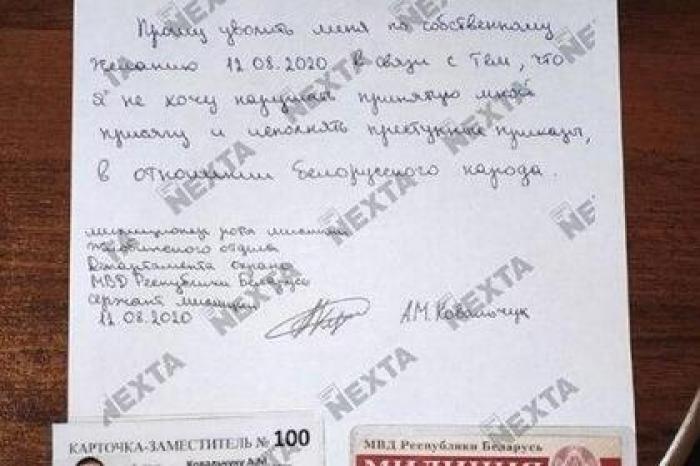 Прошу уволить меня по собственному
желанию 12.08.2020 в связи с тем, что
я не хочу нарушать принятую мной
присягу и исполнять преступные приказы,
в отношении Белорусского народа.
милиционер роты милиции
Жлобинского отдела
Департамента охраны
МВД Республики Беларусь
сержант милиции
12.08.2020
А.М. Ковальчук
КАРТОЧКА-ЗАМЕСТИТЕЛЬ № 100
Ковальчуку А.М.
МВД Республики Беларусь
МИЛИЦИЯ
NEXTA
NEXTA
NEXTA
NEXTA
NEXTA
NEXTA
NEXTA
NEXTA
NEXTA
NEXTA